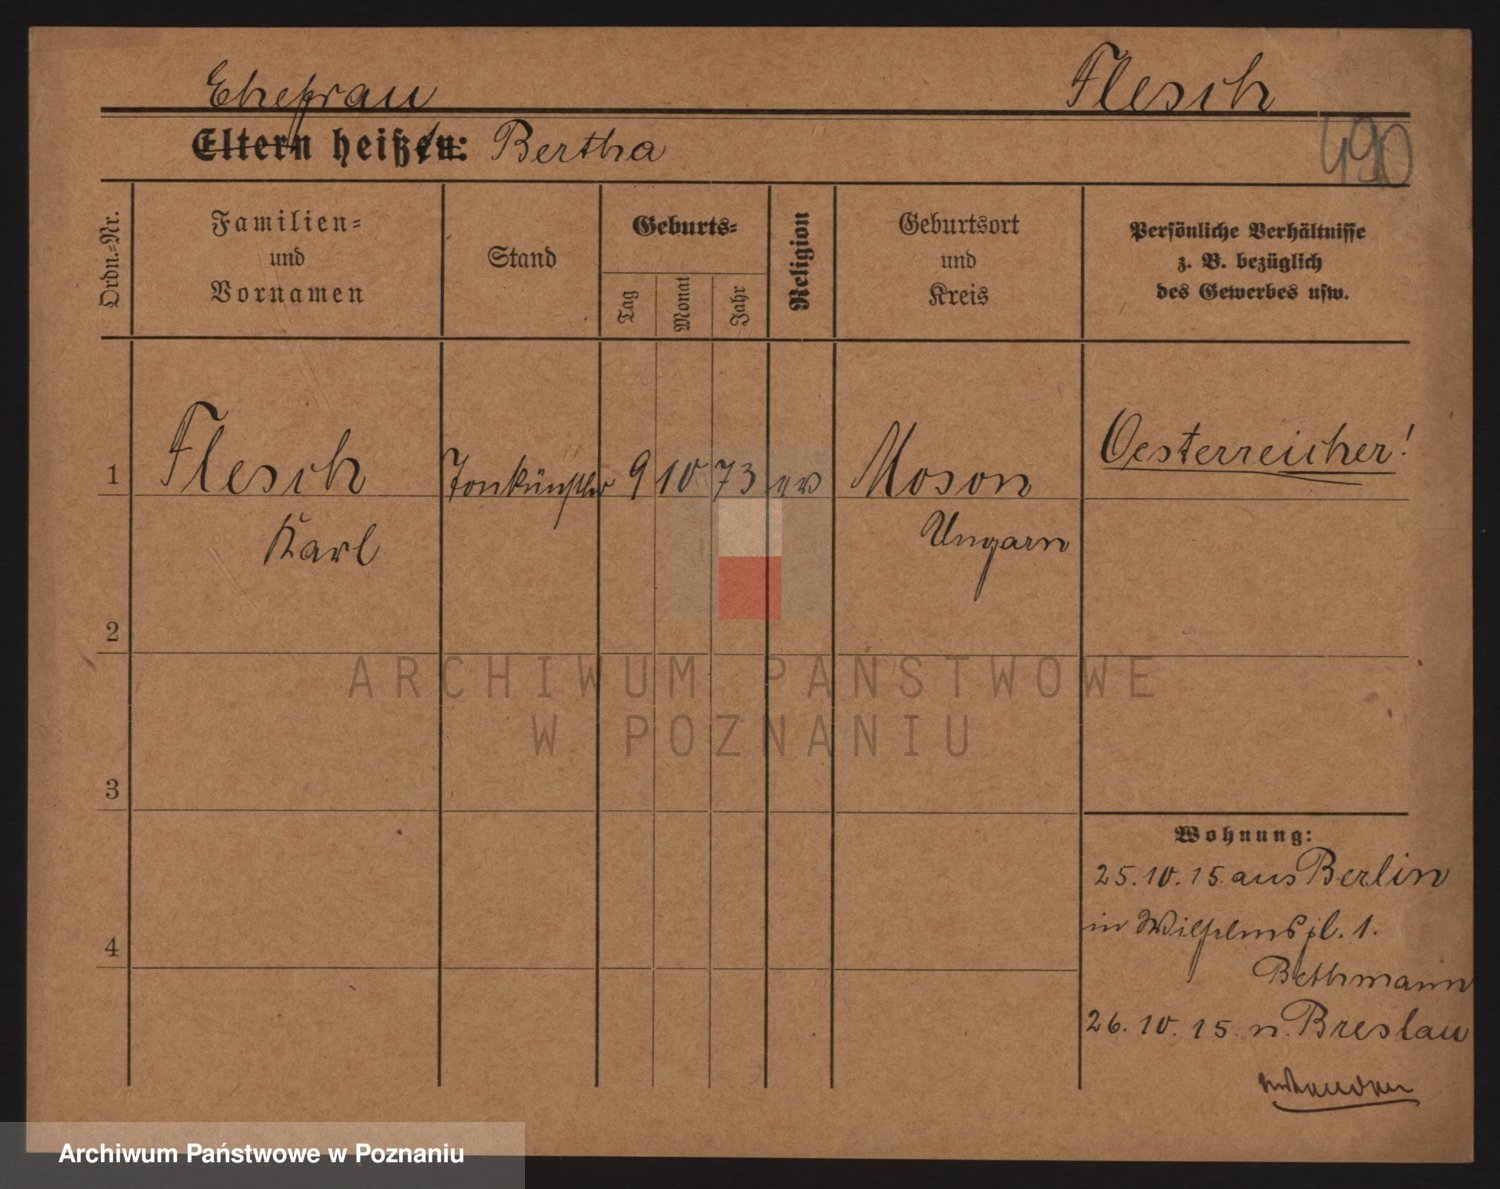 Ehefrau Flesch
Eltern heißen: Bertha
490
Ordn.-Nr.
Familien-
und
Vornamen
Stand
Geburts-
Tag
Monat
Jahr
Religion
Geburtsort
und
Kreis
Persönliche Verhältnisse
z. B. bezüglich
des Gewerbes usw.
1 Flesch Tonkünstler 9 10 73 ev Moson Oesterreicher!
Karl Ungarn
2
3
4
ARCHIWUM PAŃSTWOWE
W POZNANIU
Wohnung:
25.10.15. aus Berlin
in Wilhelmspl. 1.
Bethmann
26.10.15. n. Breslau
Archiwum Państwowe w Poznaniu